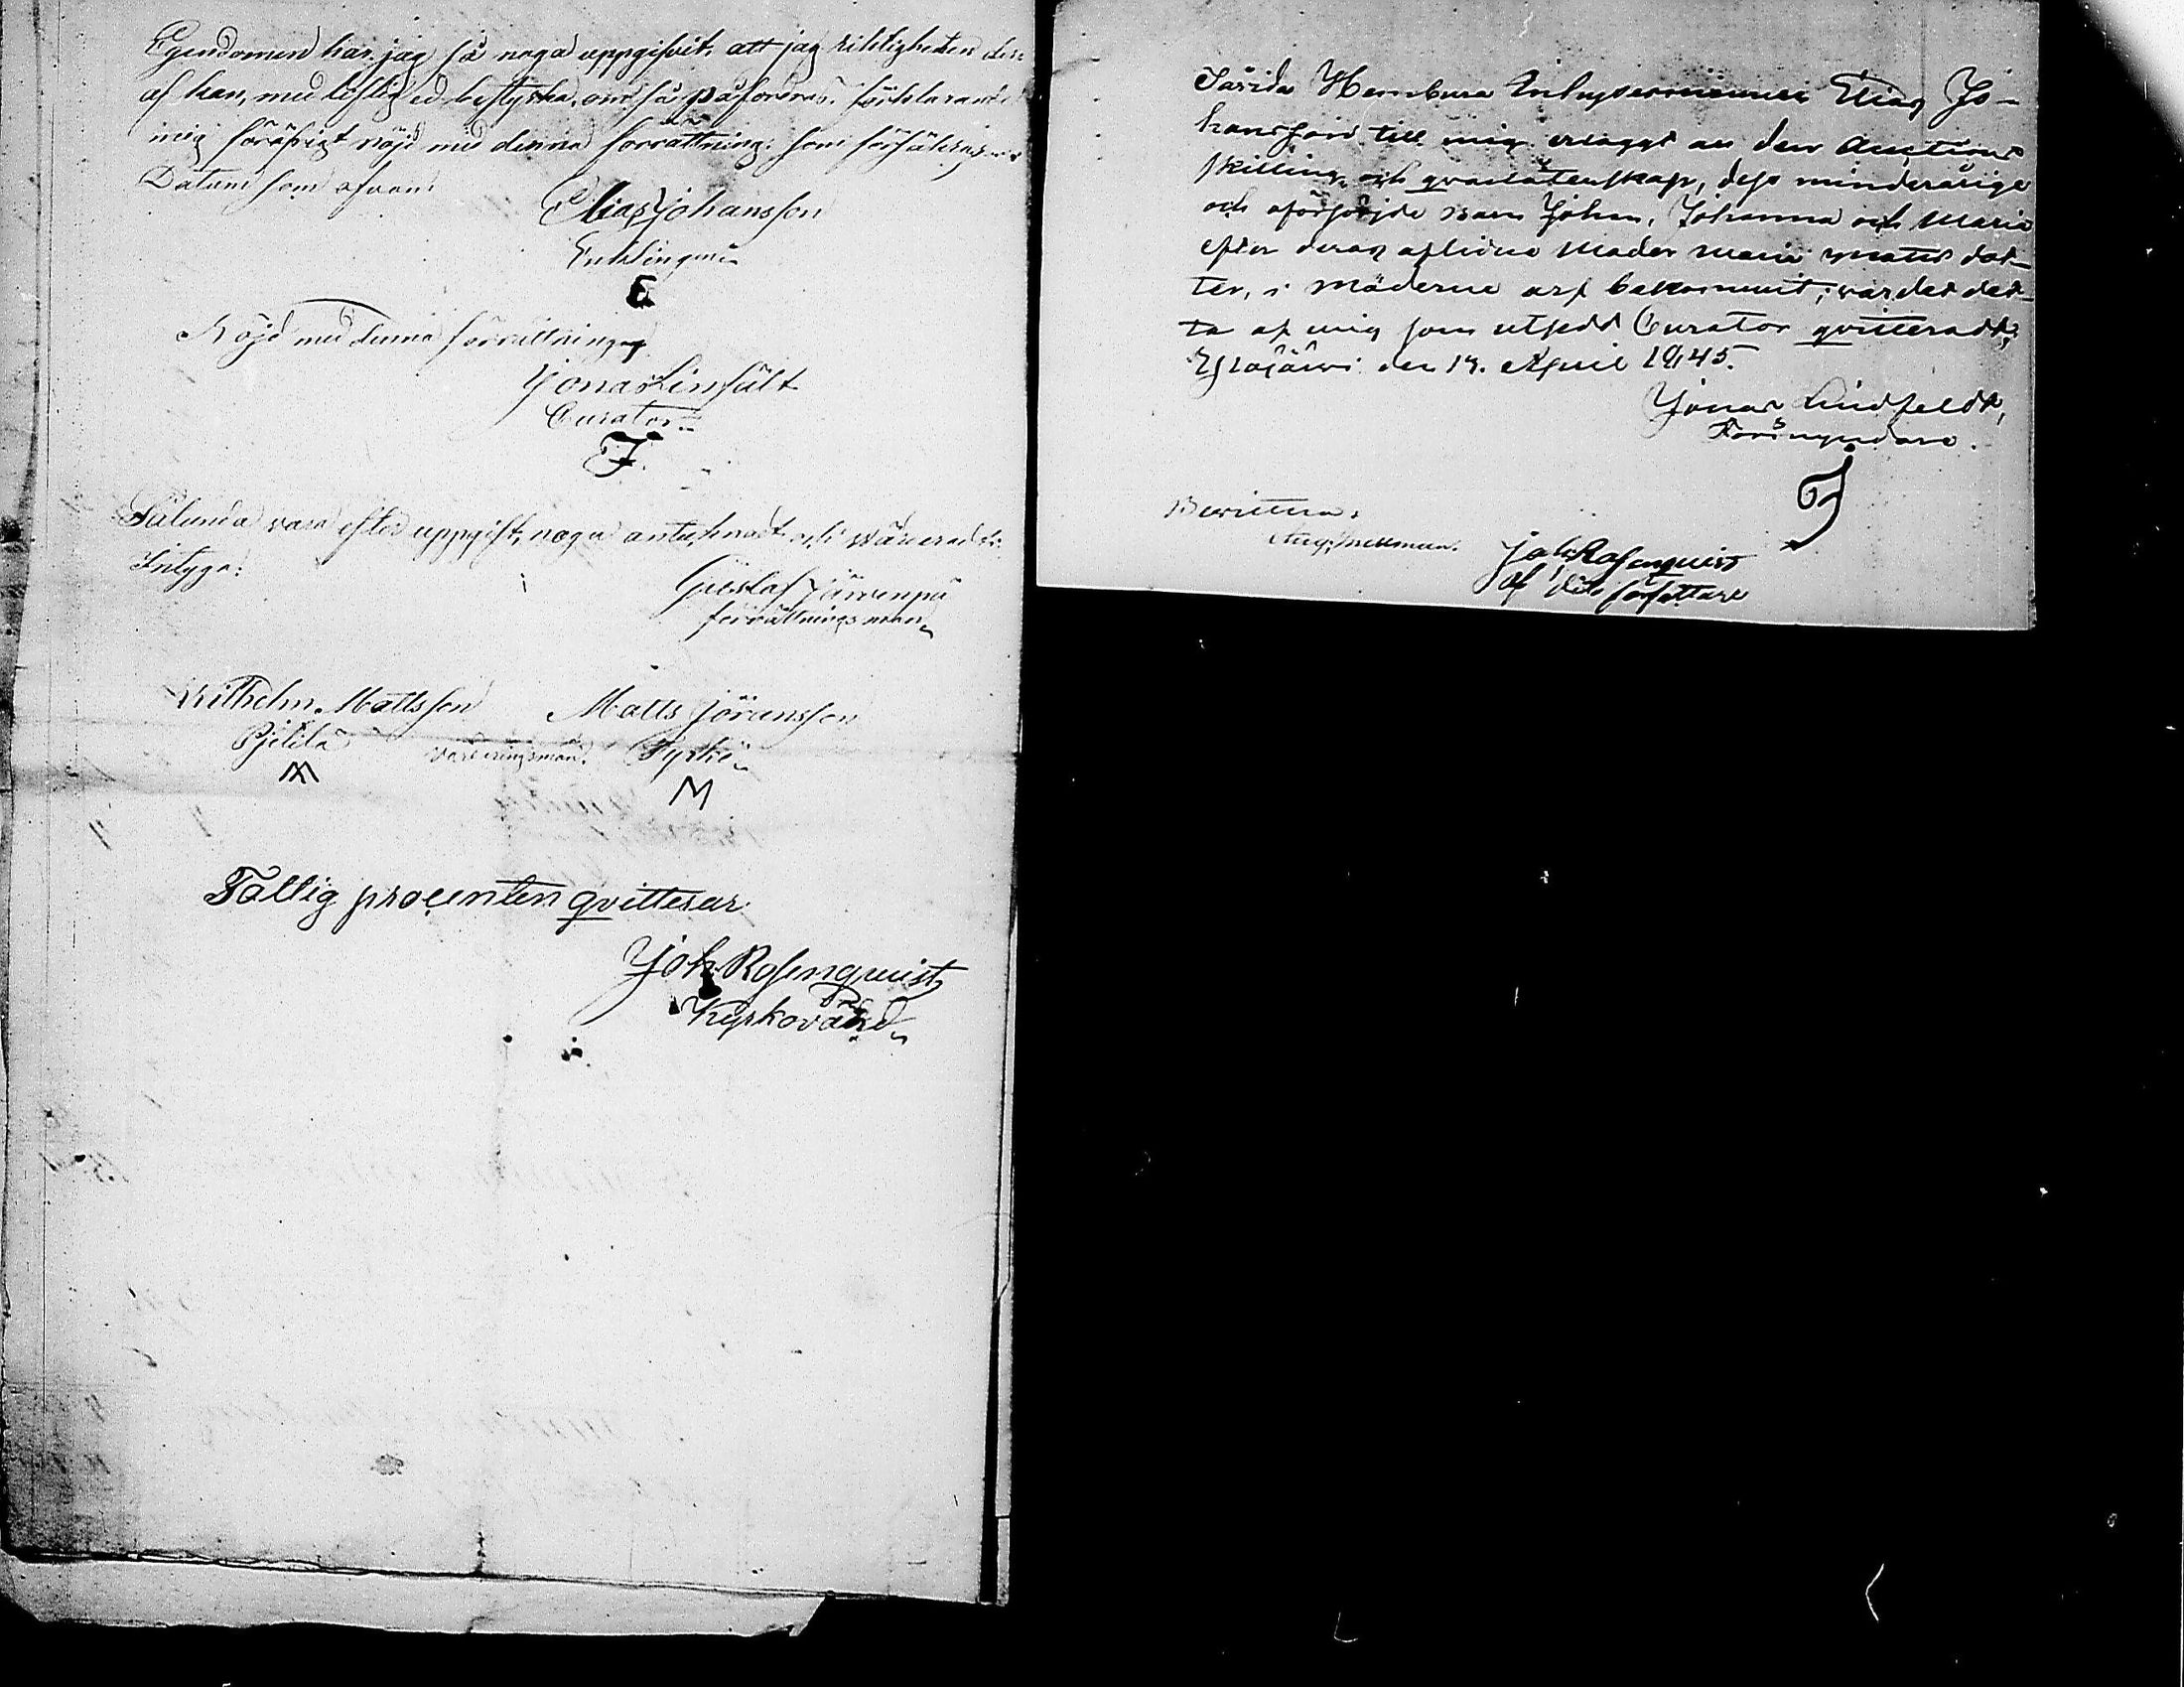 Egendomen har jag så noga uppgifvit, att jag riktigheten der
af kan, med liflig ed bestyrka, om så påfordras. förklarande
mig föröfrigt nöjd med denna förrättning. som försäkras
Datum som ofvan.
Elias Johansson
Enklingen
E
Nöjd med denna förrättning
Jonas Linfält
Curator
J
Sålunda vara efter uppgift, noga antecknadt och värderadt
Intyga:
Gustaf Järvenpä
förrättningsman
Wilhelm Mattsson Matts Jöransson
Pjelilä värderingsmän. Tyrkö
M M
Fattig procenten qvitterar
Joh Rosenqvist
Kyrkovärd
Enklingen Elias Jo-
hansson till mig erlagt all den Auctions
skilling, och qvarlåtenskap, dess minderårige
och oförsörjde barn Johan, Johanna och Maria
efter deras aflidne Moder Maria Matts dot-
ter, i Möderne arf bekommit; varder det-
ta af mig som utsedd Curator qvitteradt;
den 14. April 1845.
Jonas Lindfeldt,
Förmyndare.
J
Bevittna:
Joh Rosenqvist
af dito författare